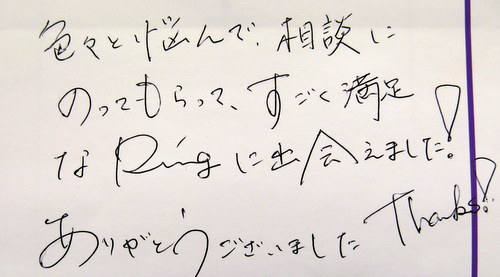 色々と悩んで、相談に
のってもらって、すごく満足
な Ring に出会えました!
ありがとうございました Thanks!!